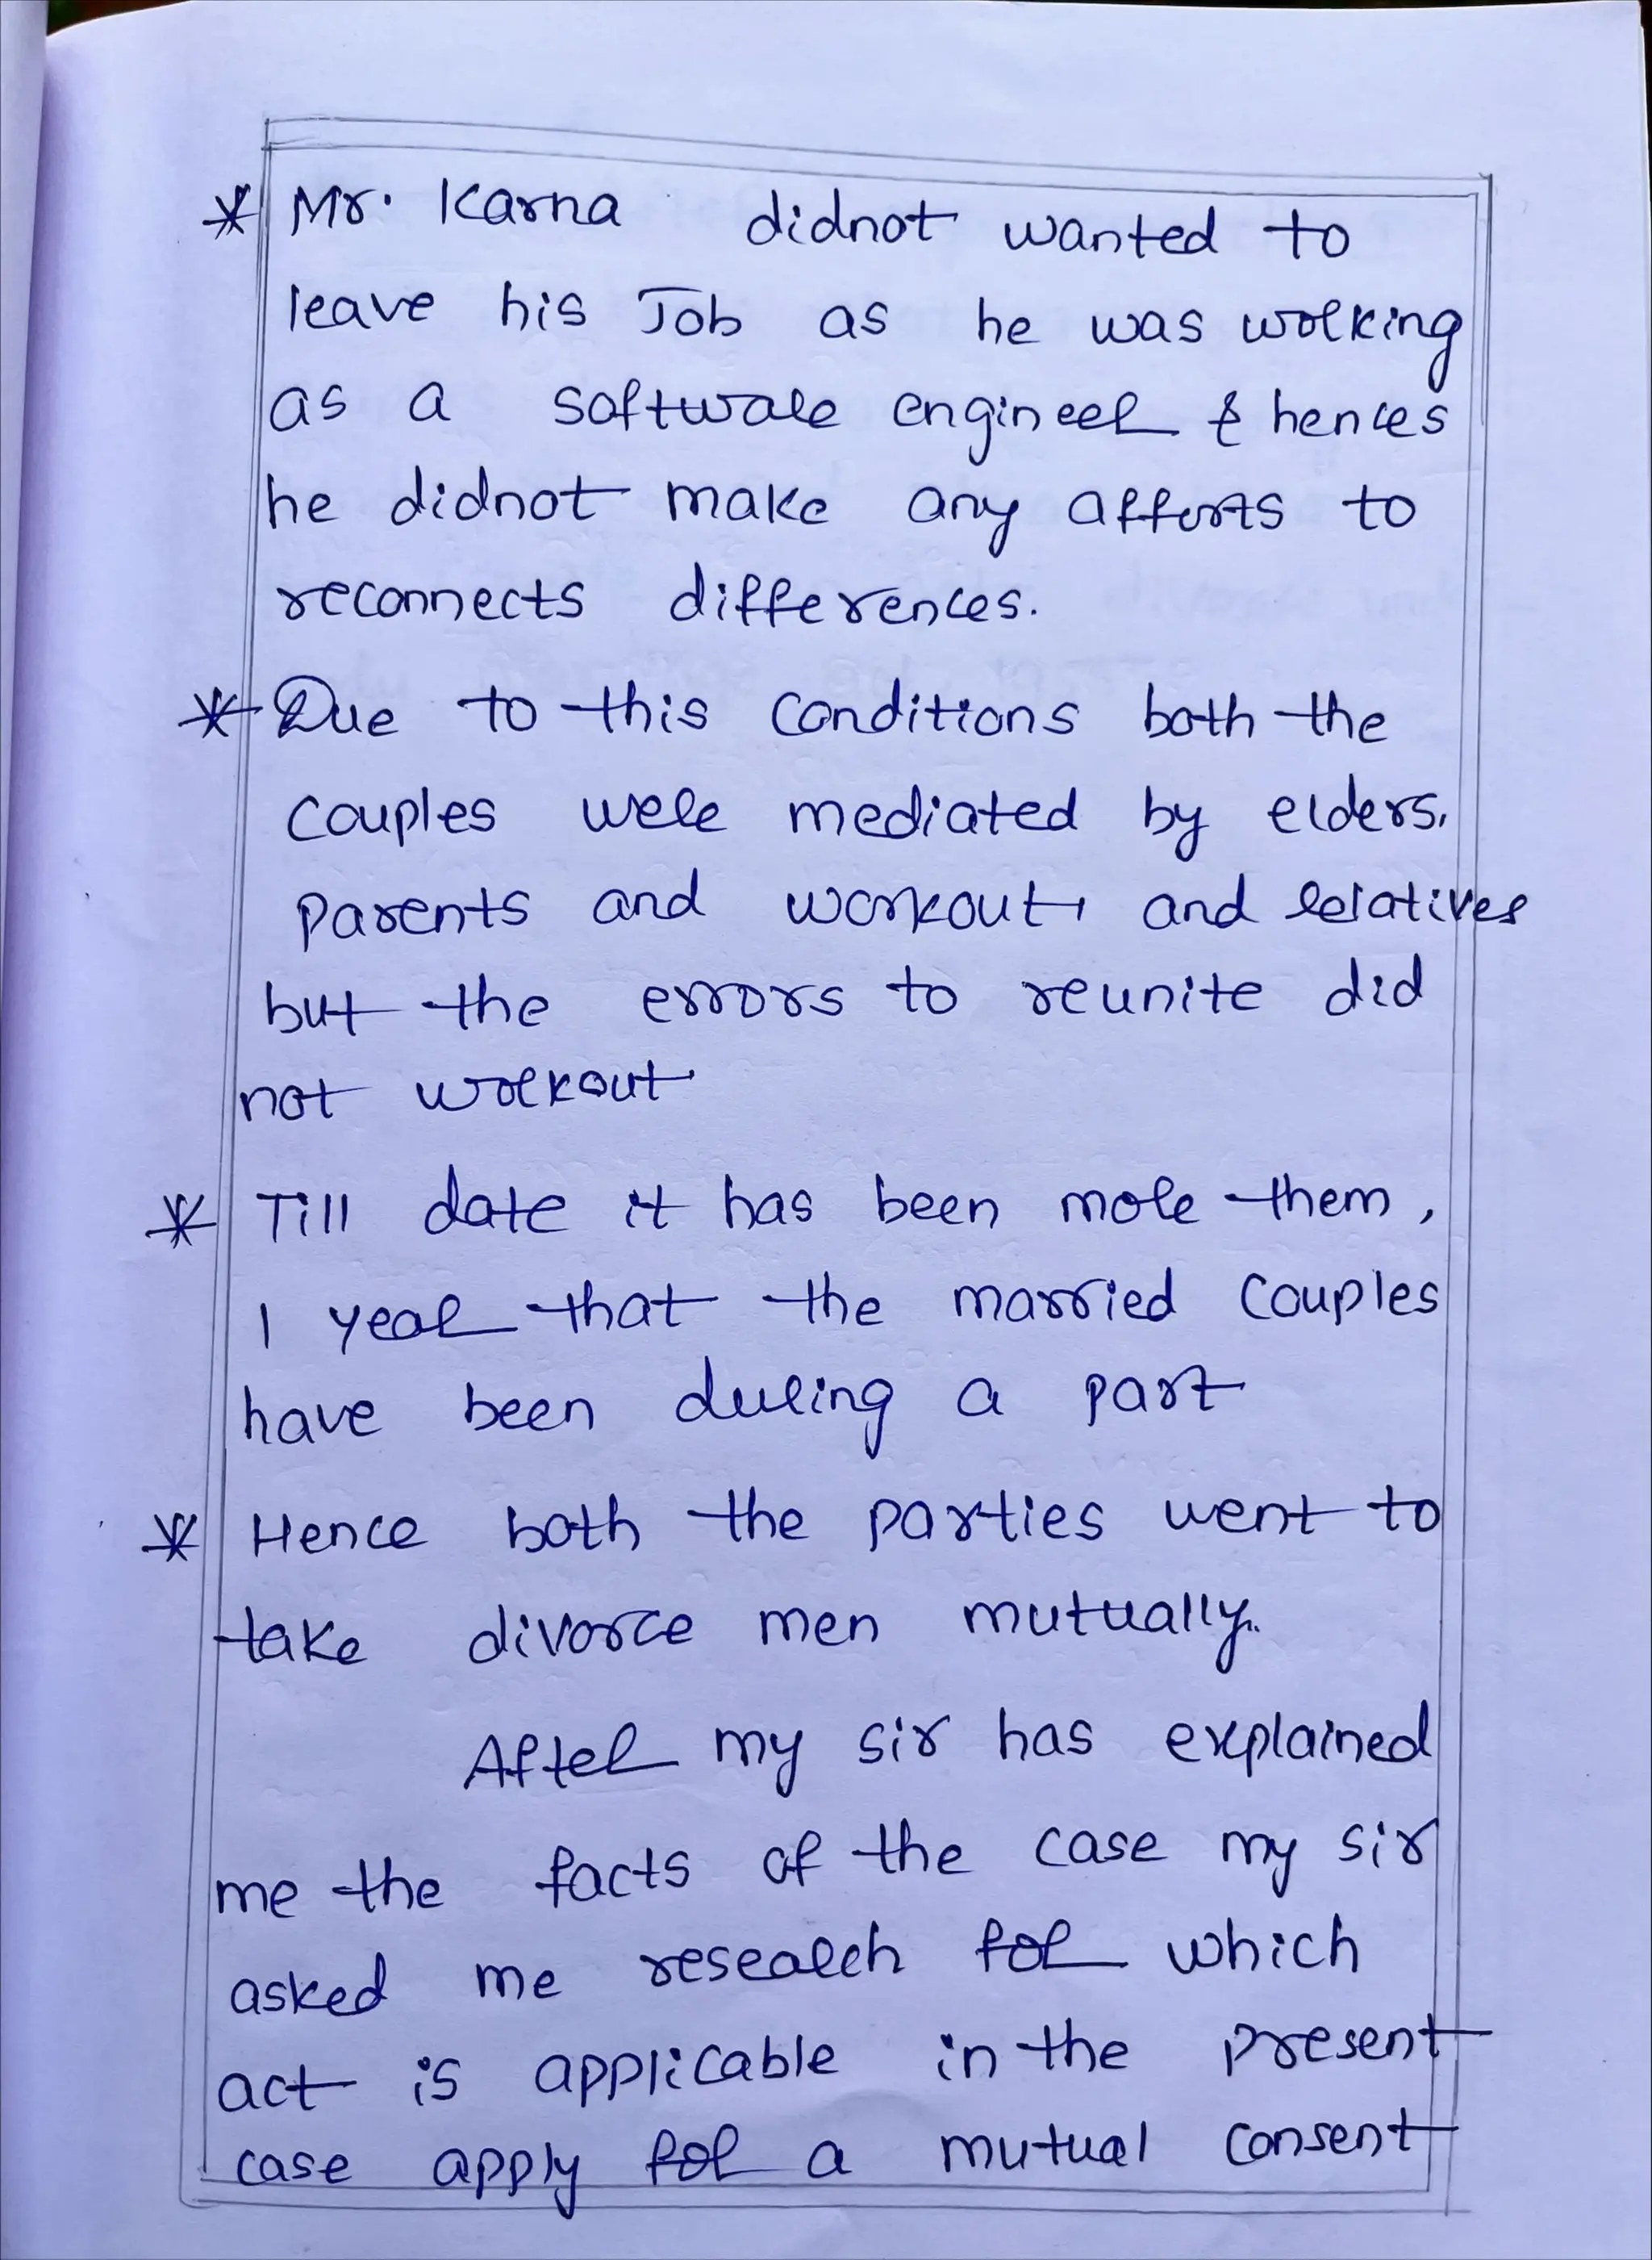 * Mr. Karna didnot wanted to
leave his Job as he was working
as a software engineer & hences
he didnot make any afforts to
reconnects differences.
* Due to this conditions both the
couples were mediated by elders,
parents and workout, and relatives
but the errors to reunite did
not workout
* Till date it has been more them,
1 year that the married couples
have been during a part
* Hence both the parties went to
take divorce men mutually.
After my sir has explained
me the facts of the case my sir
asked me research for which
act is applicable in the present
case apply for a mutual consent